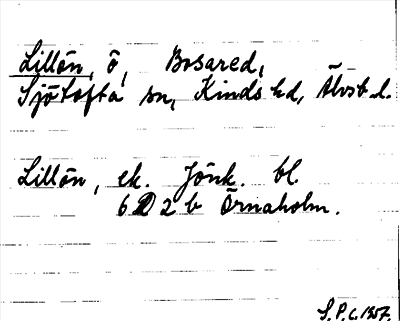 Lillön, ö, Bosared,
Sjötofta sn, Kinds hd, Älvsb. l.
Lillön, ek. Jönk. bl.
6 D 2 b Örnaholm.
S.P.C. 1957.